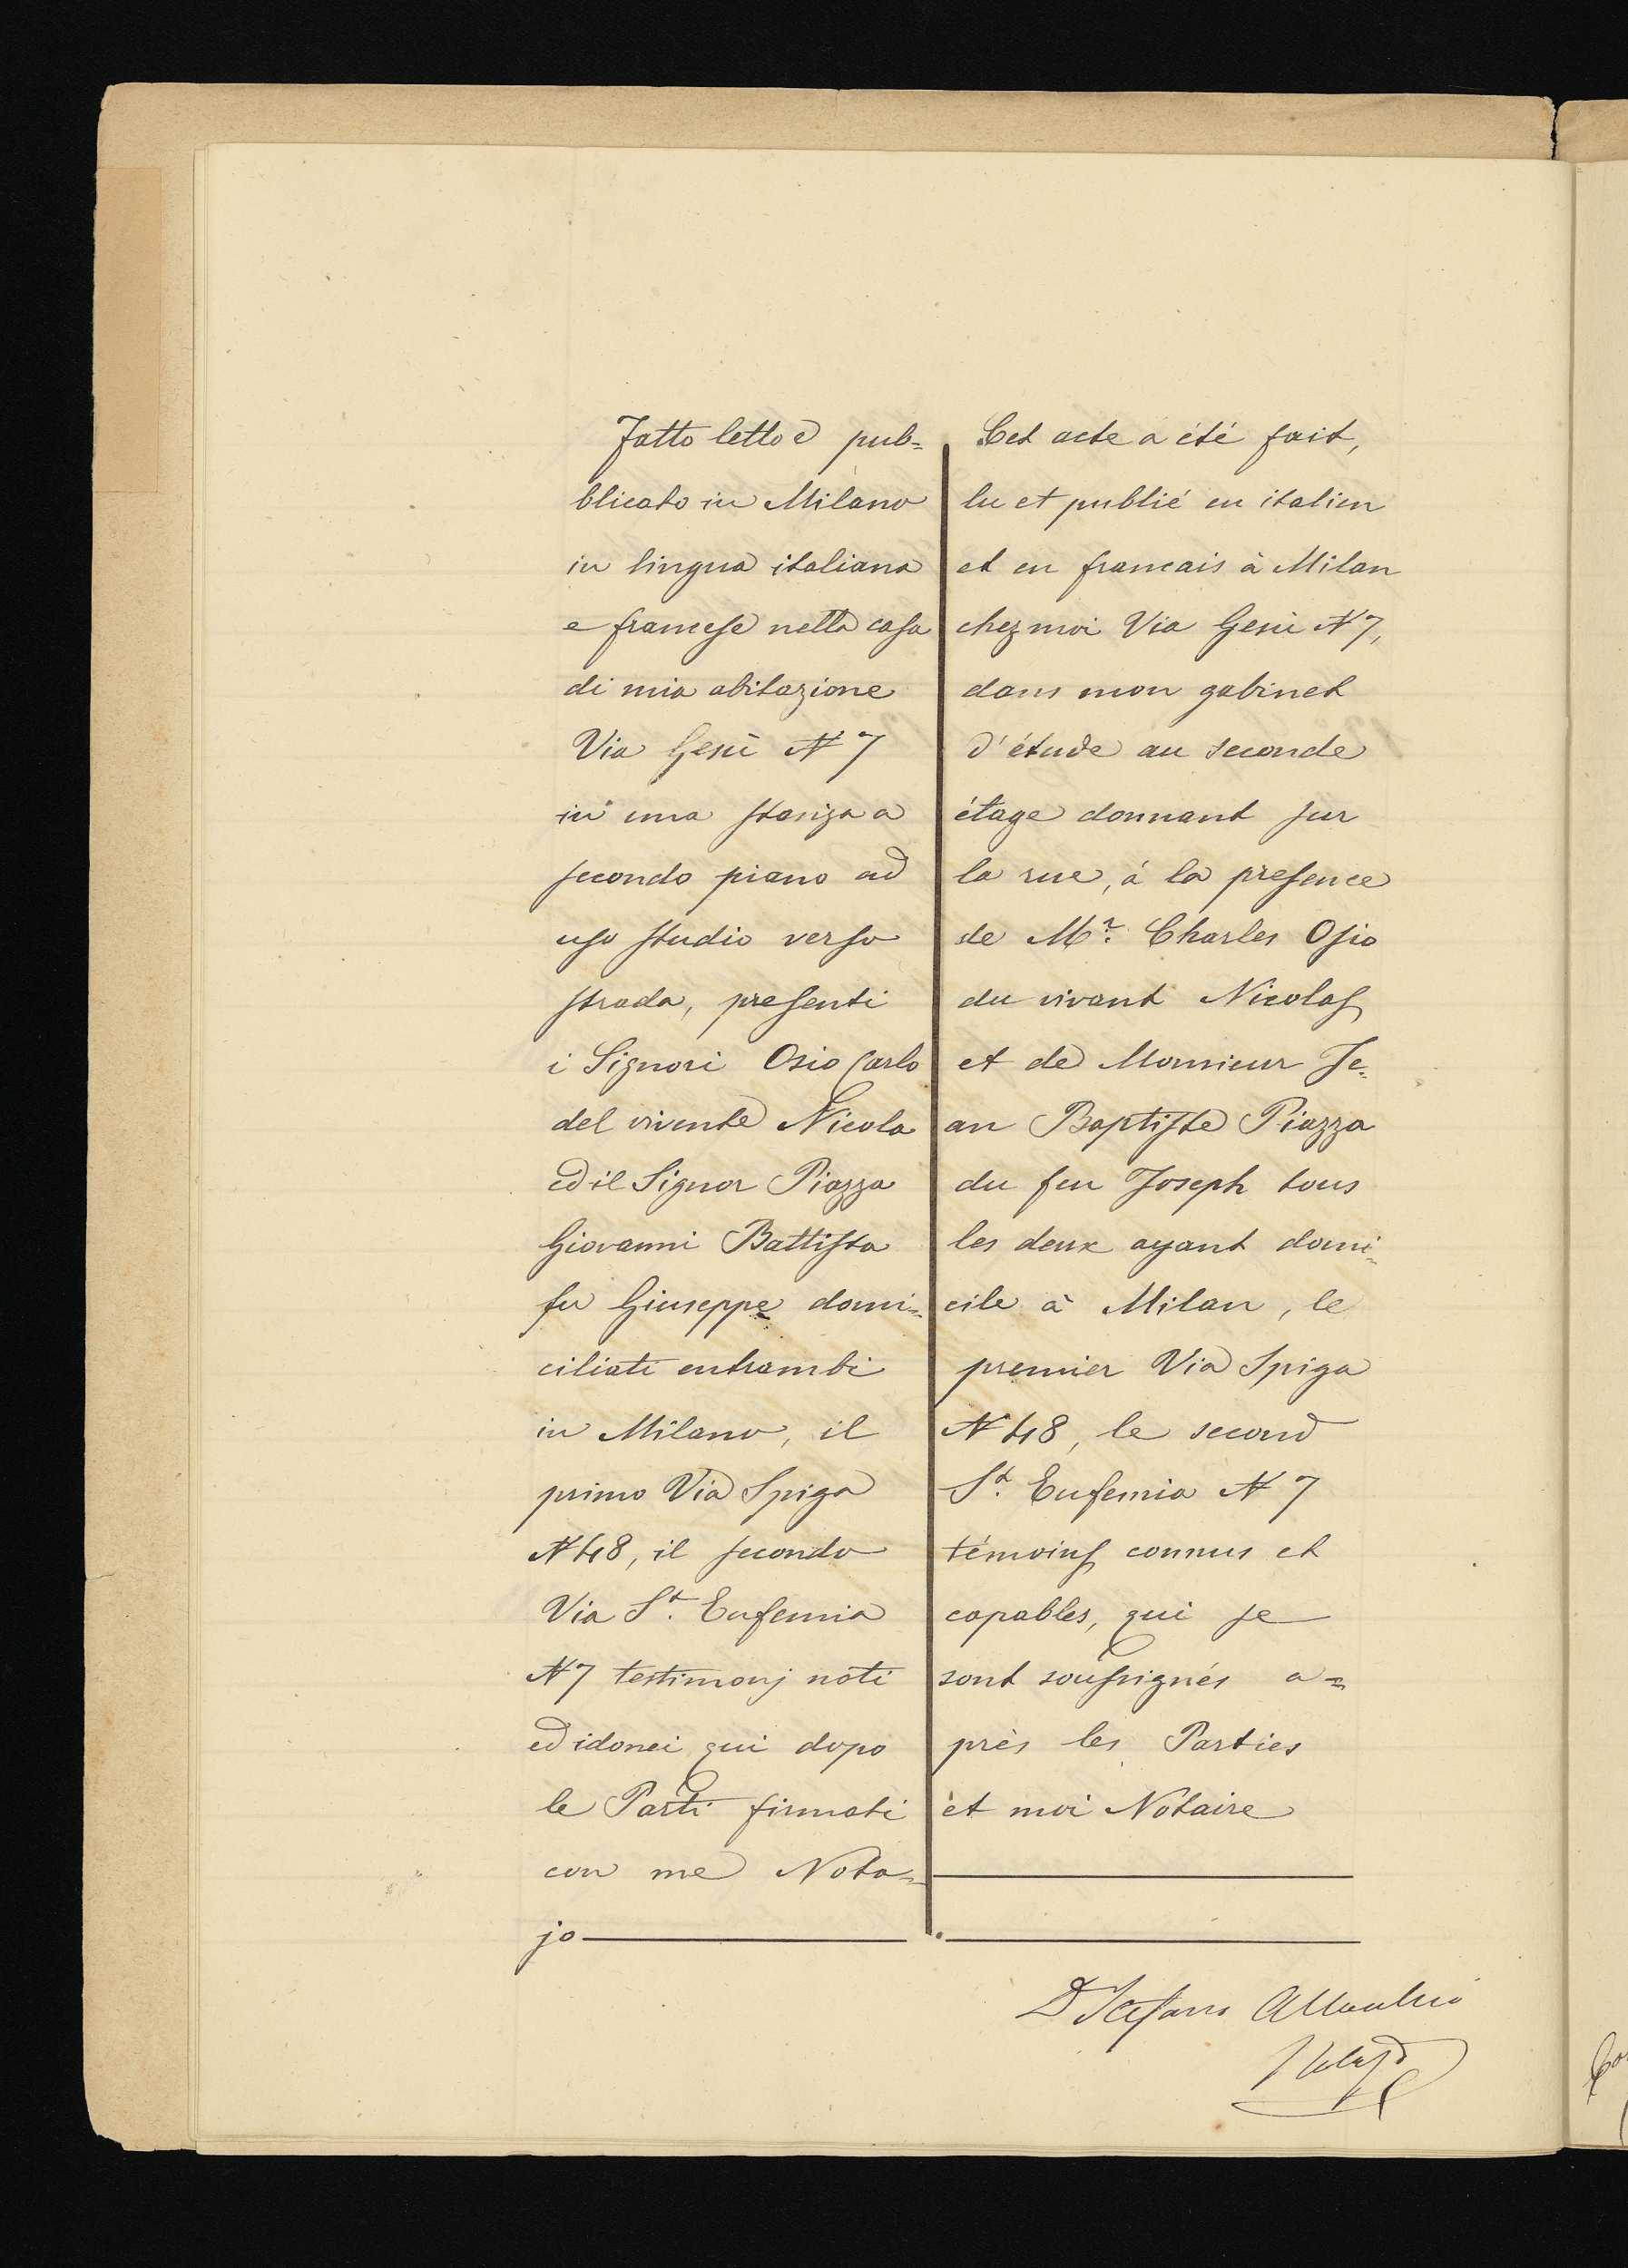 Fatto letto e pub=
blicato in Milano
in lingua italiana
e francese nella casa
di mia abitazione
Via Gesù N 7
in una stanza a
secondo piano ad
uso studio verso
strada, presenti
i Signori Osio Carlo
del vivente Nicola
ed il Signor Piazza
Giovanni Battista
fu Giuseppe domi=
ciliati entrambi
in Milano, il
primo Via Spiga
N 48, il secondo
Via St. Eufemia
N 7 testimonj noti
ed idonei qui dopo
le Parti firmati
con me Nota=
jo
Cet acte a été fait,
lu et publié en italien
et en francais à Milan
chez moi Via Gesù N 7,
dans mon gabinet
d'étude au seconde
étage donnant sur
la rue, à la presence
de Mr. Charles Osio
du vivant Nicolas
et de Monsieur Je=
an Baptiste Piazza
du feu Joseph tous
les deux ayant domi=
cile à Milan, le
premier Via Spiga
N 48, le second
St. Eufemia N 7
témoins connus et
capables, qui se
sont soussignés a=
près les Parties
et moi Notaire
D Stefano Allocchio